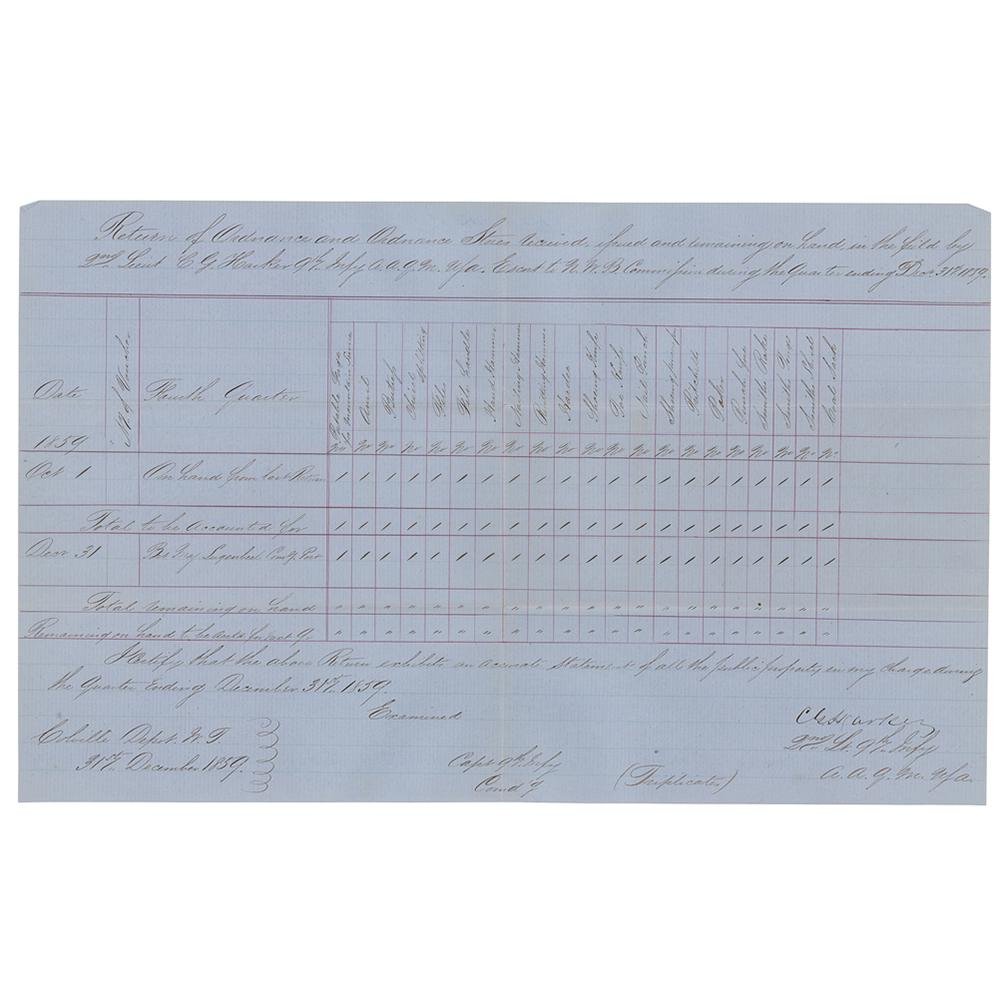 Return of Ordnance and Ordnance Stores received, issued and remaining on hand, in the field by
2nd Lieut C. G. Harker 9th Infy A.A.Q.M. U/a. Escort to N.W.B Commission during the Quarter ending Decr 31st 1859.
Date
1859
No of Voucher
Fourth Quarter
Portable Forge
Anvil
Buttress
Chisel
File
File Handle
Hand Hammer
Sailing Hammer
Riding Hammer
Hardee
Shoeing Knife
Toe Knife
Nail Punch
Pritchell
Smiths Rake
Smiths Tongs
Smiths Shovel
Coal Sack
No No No No No No No No No No No No No No No No No No No No No
Oct 1 On hand from last Return 1 1 1 1 1 1 1 1 1 1 1 1 1 1 1 1 1 1 1 1 1
Total to be accounted for 1 1 1 1 1 1 1 1 1 1 1 1 1 1 1 1 1 1 1 1 1
Decr 31 Lugenbeel Com'g Post 1 1 1 1 1 1 1 1 1 1 1 1 1 1 1 1 1 1 1 1 1
Total remaining on hand " " " " " " " " " " " " " " " " " " " " "
Remaining on hand to be actd for next Qr " " " " " " " " " " " " " " " " " " " " "
I certify that the above Return exhibits an accurate statement of all the public property in my charge during
the Quarter Ending December 31st 1859.
Examined
C G Harker
Colville Depot. W. T.
2nd Lt. 9th Infy
31st December 1859.
Capt 9th Infy
(Triplicates)
A. A. Q. M. U/a.
Comd'g